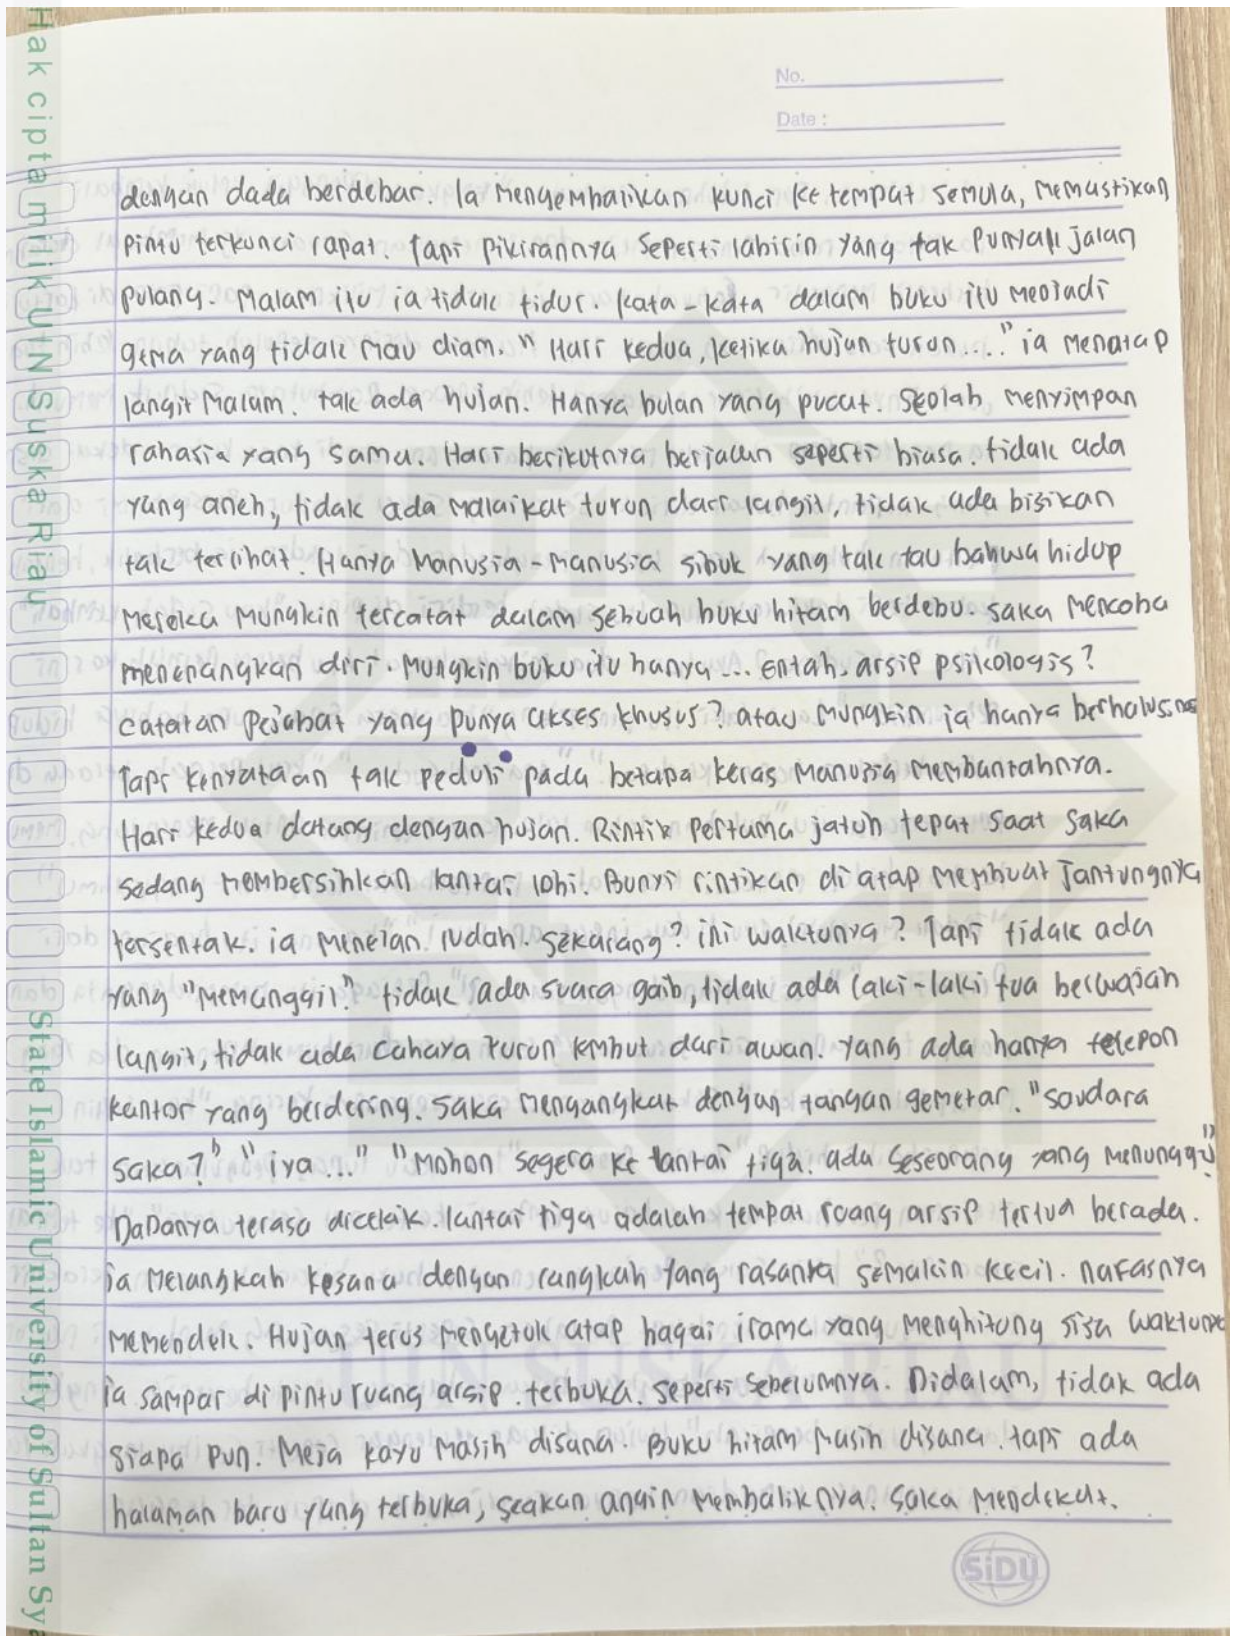 No.
Date :
dengan dada berdebar. Ia mengembalikan kunci ke tempat semula, memastikan
pintu terkunci rapat. Tapi pikirannya seperti labirin yang tak punya jalan
pulang. Malam itu ia tidak tidur. Kata-kata dalam buku itu menjadi
gema yang tidak mau diam. "Hari kedua, ketika hujan turun...." ia menatap
langit malam. tak ada hujan. Hanya bulan yang pucat. Seolah menyimpan
rahasia yang sama. Hari berikutnya berjalan seperti biasa. tidak ada
yang aneh, tidak ada malaikat turun dari langit, tidak ada bisikan
tak terlihat. Hanya Manusia-Manusia sibuk yang tak tau bahwa hidup
mereka mungkin tercatat dalam sebuah buku hitam berdebu. saka mencoba
menenangkan diri. Mungkin buku itu hanya... entah. arsip psikologis?
catatan pejabat yang punya akses khusus? atau mungkin ia hanya berhalusinasi
Tapi kenyataan tak peduli pada betapa keras manusia membantahnya.
Hari kedua datang dengan hujan. Rintik pertama jatuh tepat saat saka
sedang membersihkan lantai lobi. Bunyi rintikan di atap membuat jantungnya
tersentak. ia menelan ludah. sekarang? ini waktunya? Tapi tidak ada
yang "memanggil" tidak ada suara gaib, tidak ada laki-laki tua berwajah
langit, tidak ada cahaya turun lembut dari awan. yang ada hanya telepon
kantor yang berdering. saka mengangkat dengan tangan gemetar. "saudara
saka?" "iya..." "Mohon segera ke lantai tiga. ada seseorang yang menunggu"
DaDanya terasa dicekik. lantai tiga adalah tempat ruang arsip tertua berada.
ia melangkah kesana dengan langkah yang rasanya semakin kecil. nafasnya
memendek. Hujan terus mengetuk atap bagai irama yang menghitung sisa waktunya
ia sampai di pintu ruang arsip. terbuka. seperti sebelumnya. Didalam, tidak ada
siapa pun. Meja kayu masih disana. Buku hitam masih disana. tapi ada
halaman baru yang terbuka, seakan angin membaliknya. saka mendekat.
SiDU
Hak cipta milik UIN Suska Riau
State Islamic University of Sultan Sya
UIN SUSKA RIAU